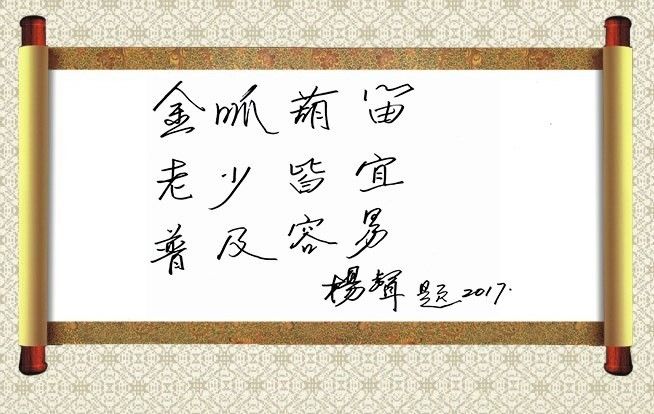 金呱葫笛
老少皆宜
普及容易
楊輝 题 2017.